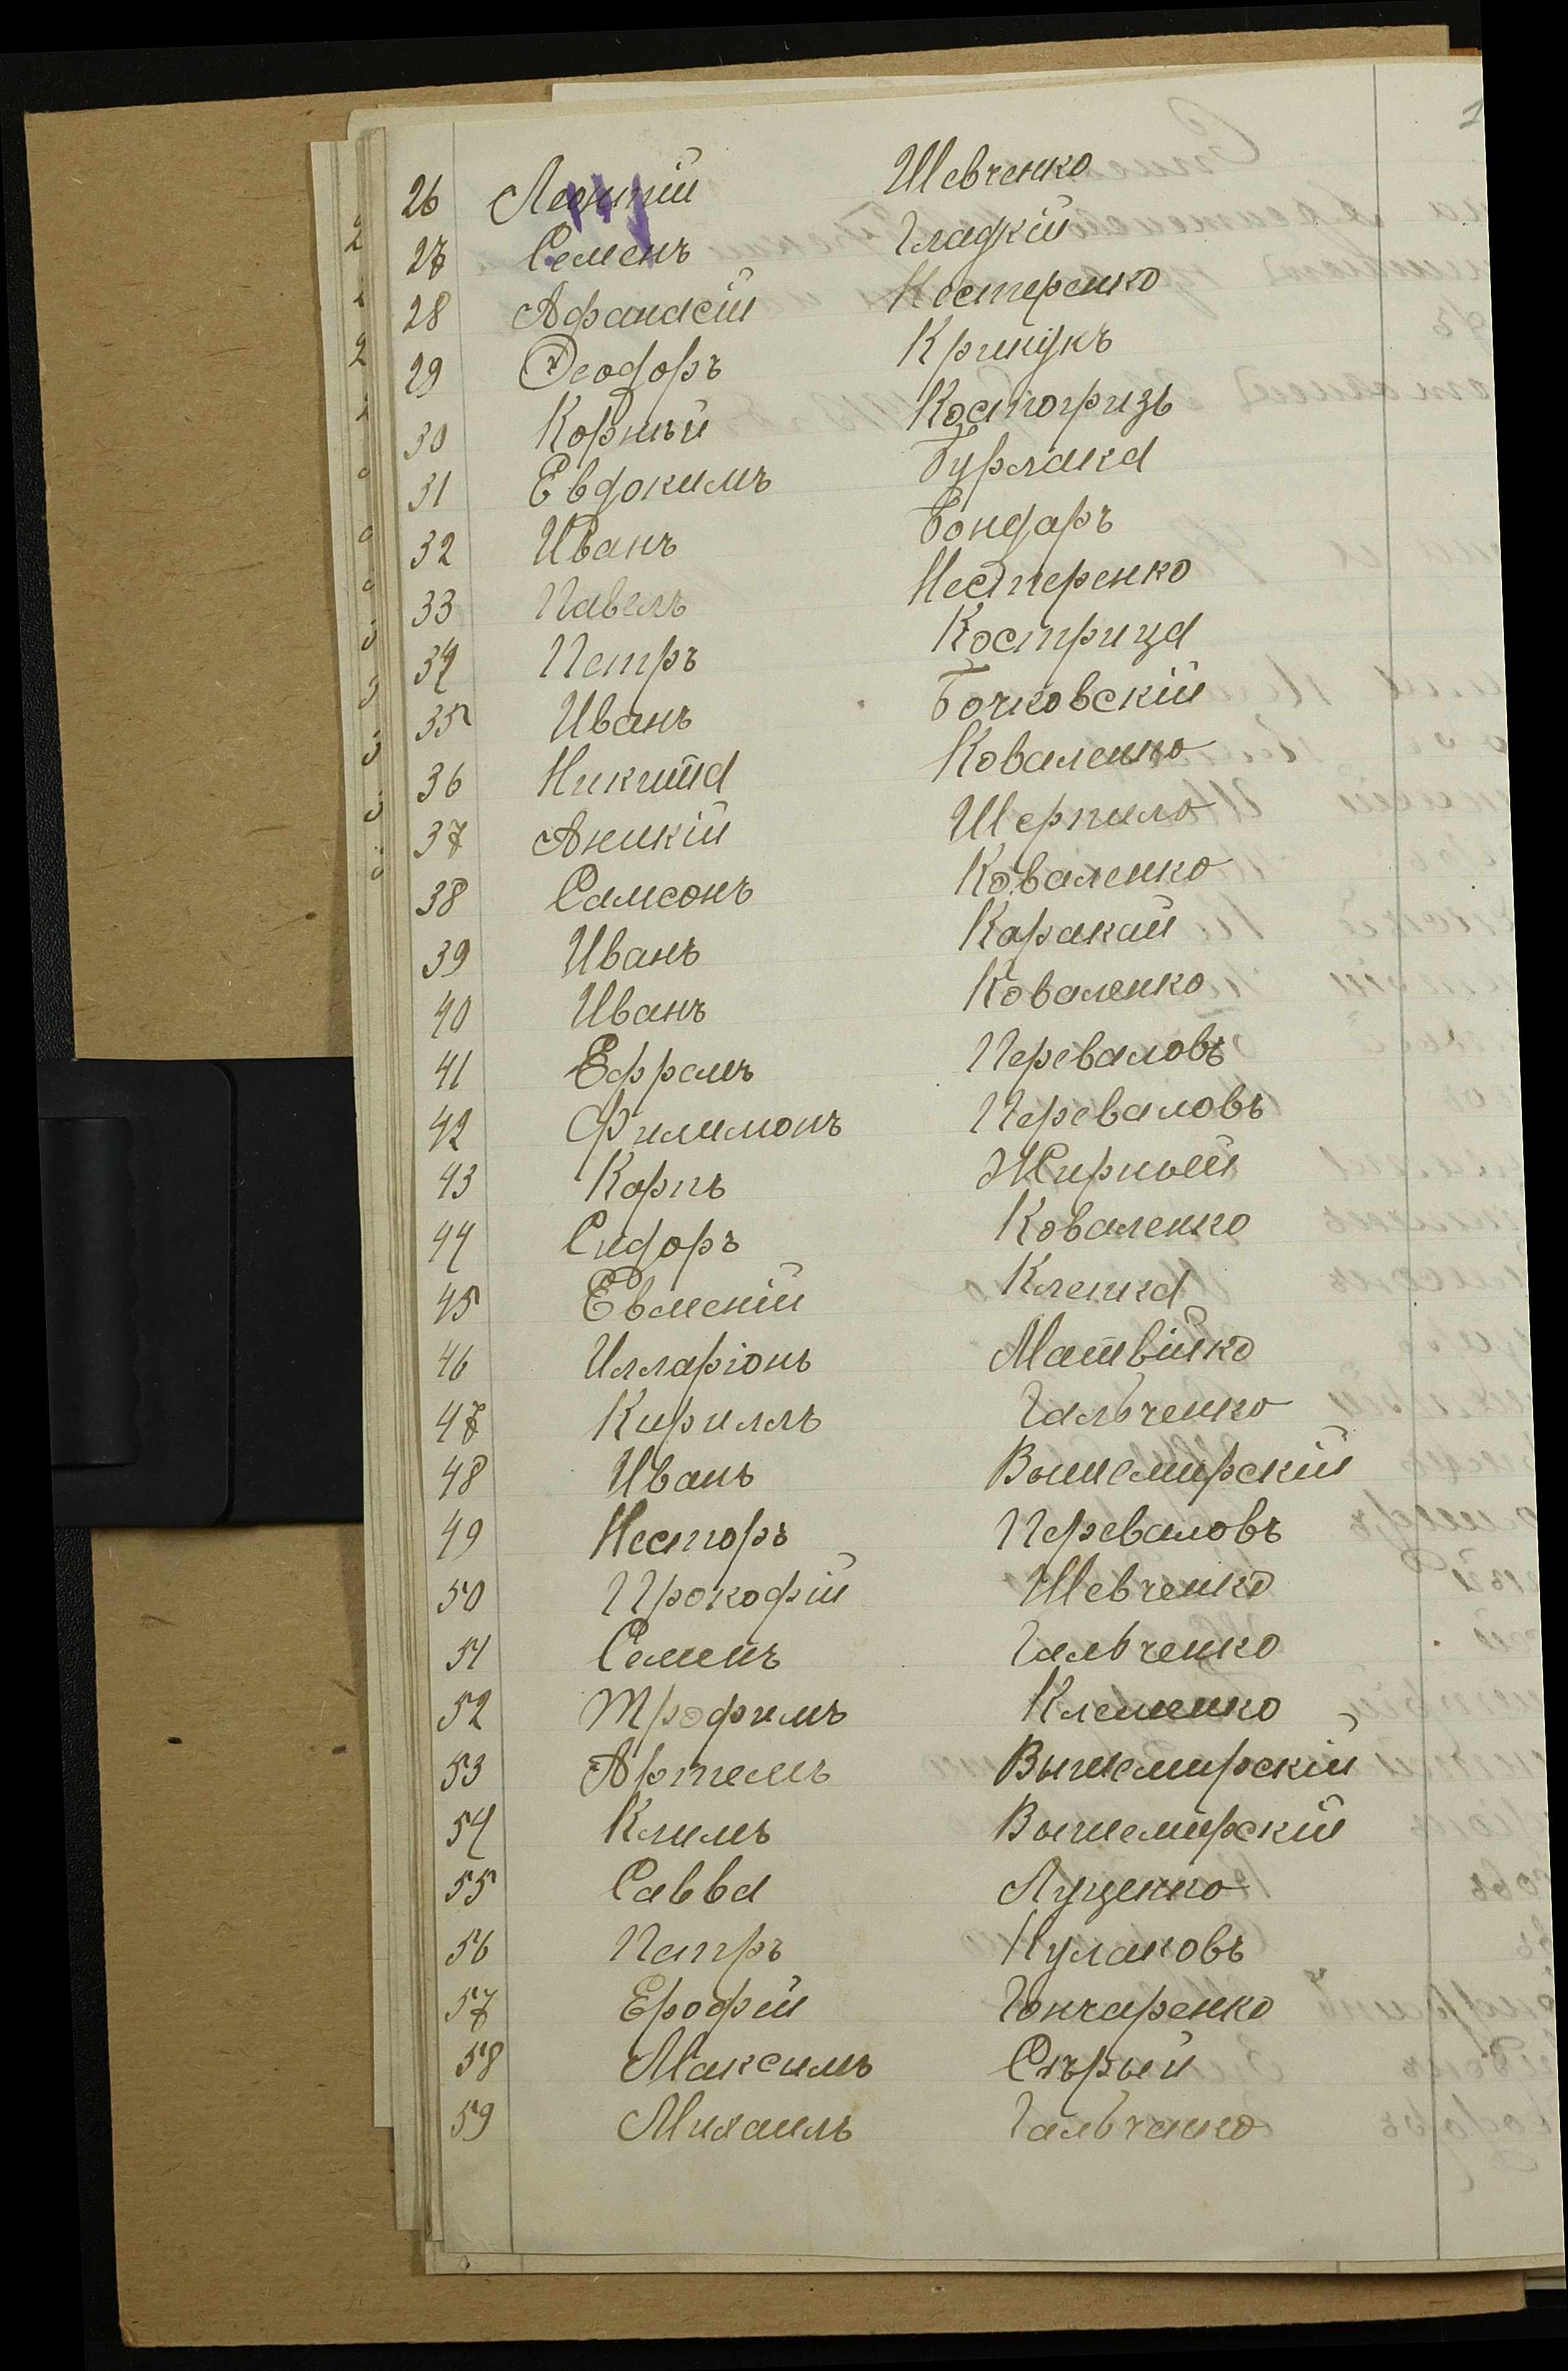 26 Леонтій Шевченко
27 Семенъ Гладкій
28 Афанасій Нестеренко
29 Ѳеодоръ Крикунъ
30 Корній Костогризъ
31 Евдокимъ Бурлака
32 Иванъ Бондаръ
33 Павелъ Нестеренко
34 Петръ Кострица
35 Иванъ Бочковскій
36 Никита Коваленко
37 Аникій Шерпило
38 Самсонъ Коваленко
39 Иванъ Каракай
40 Иванъ Коваленко
41 Ефремъ Переваловъ
42 Филимонъ Переваловъ
43 Карпъ Жирный
44 Сидоръ Коваленко
45 Евмений Клешка
46 Илларіонъ Матвійко
47 Кириллъ Гальченко
48 Иванъ Вышемирскій
49 Несторъ Переваловъ
50 Прокофій Шевченко
51 Семенъ Гальченко
52 Трофимъ Клеменко
53 Артемъ Вышемирскій
54 Климъ Вышемирскій
55 Савва Луценко
56 Петръ Кулаковъ
57 Ерофій Гончаренко
58 Максимъ Сѣрый
59 Михаилъ Гальченко